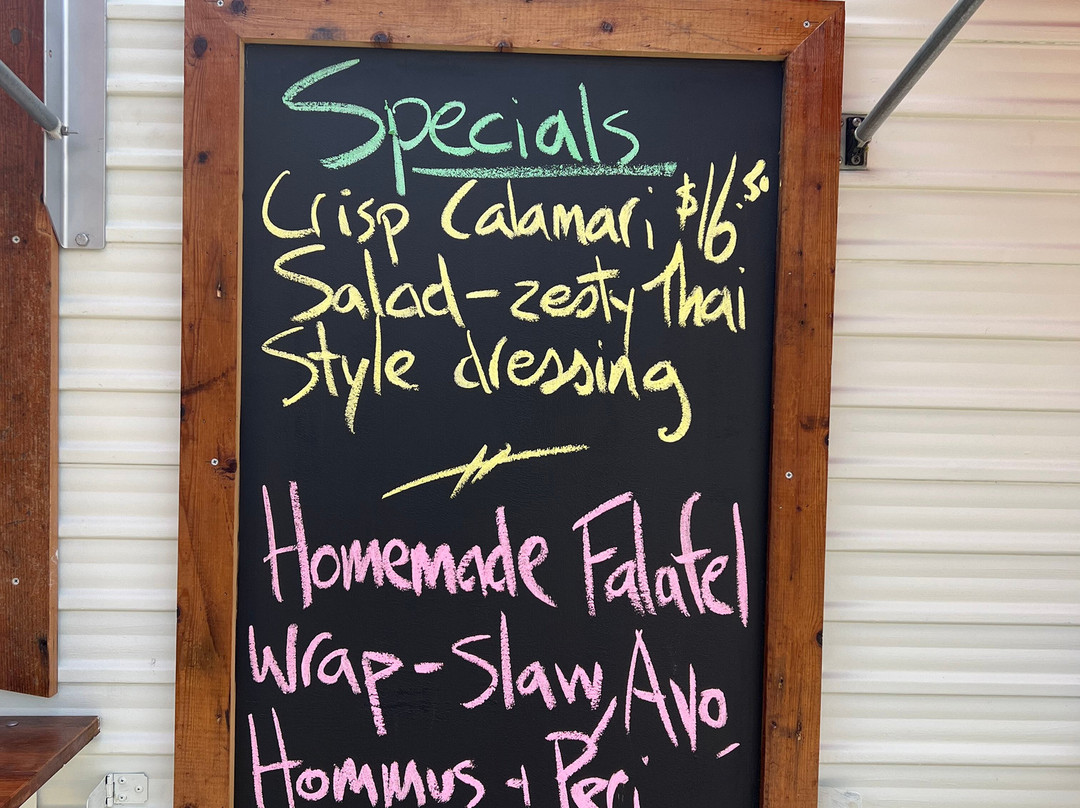 Specials
Crisp Calamari $16.50
Salad - zesty Thai
Style dressing
Homemade Falafel
Wrap - Slaw, Avo
Hommus + Peri